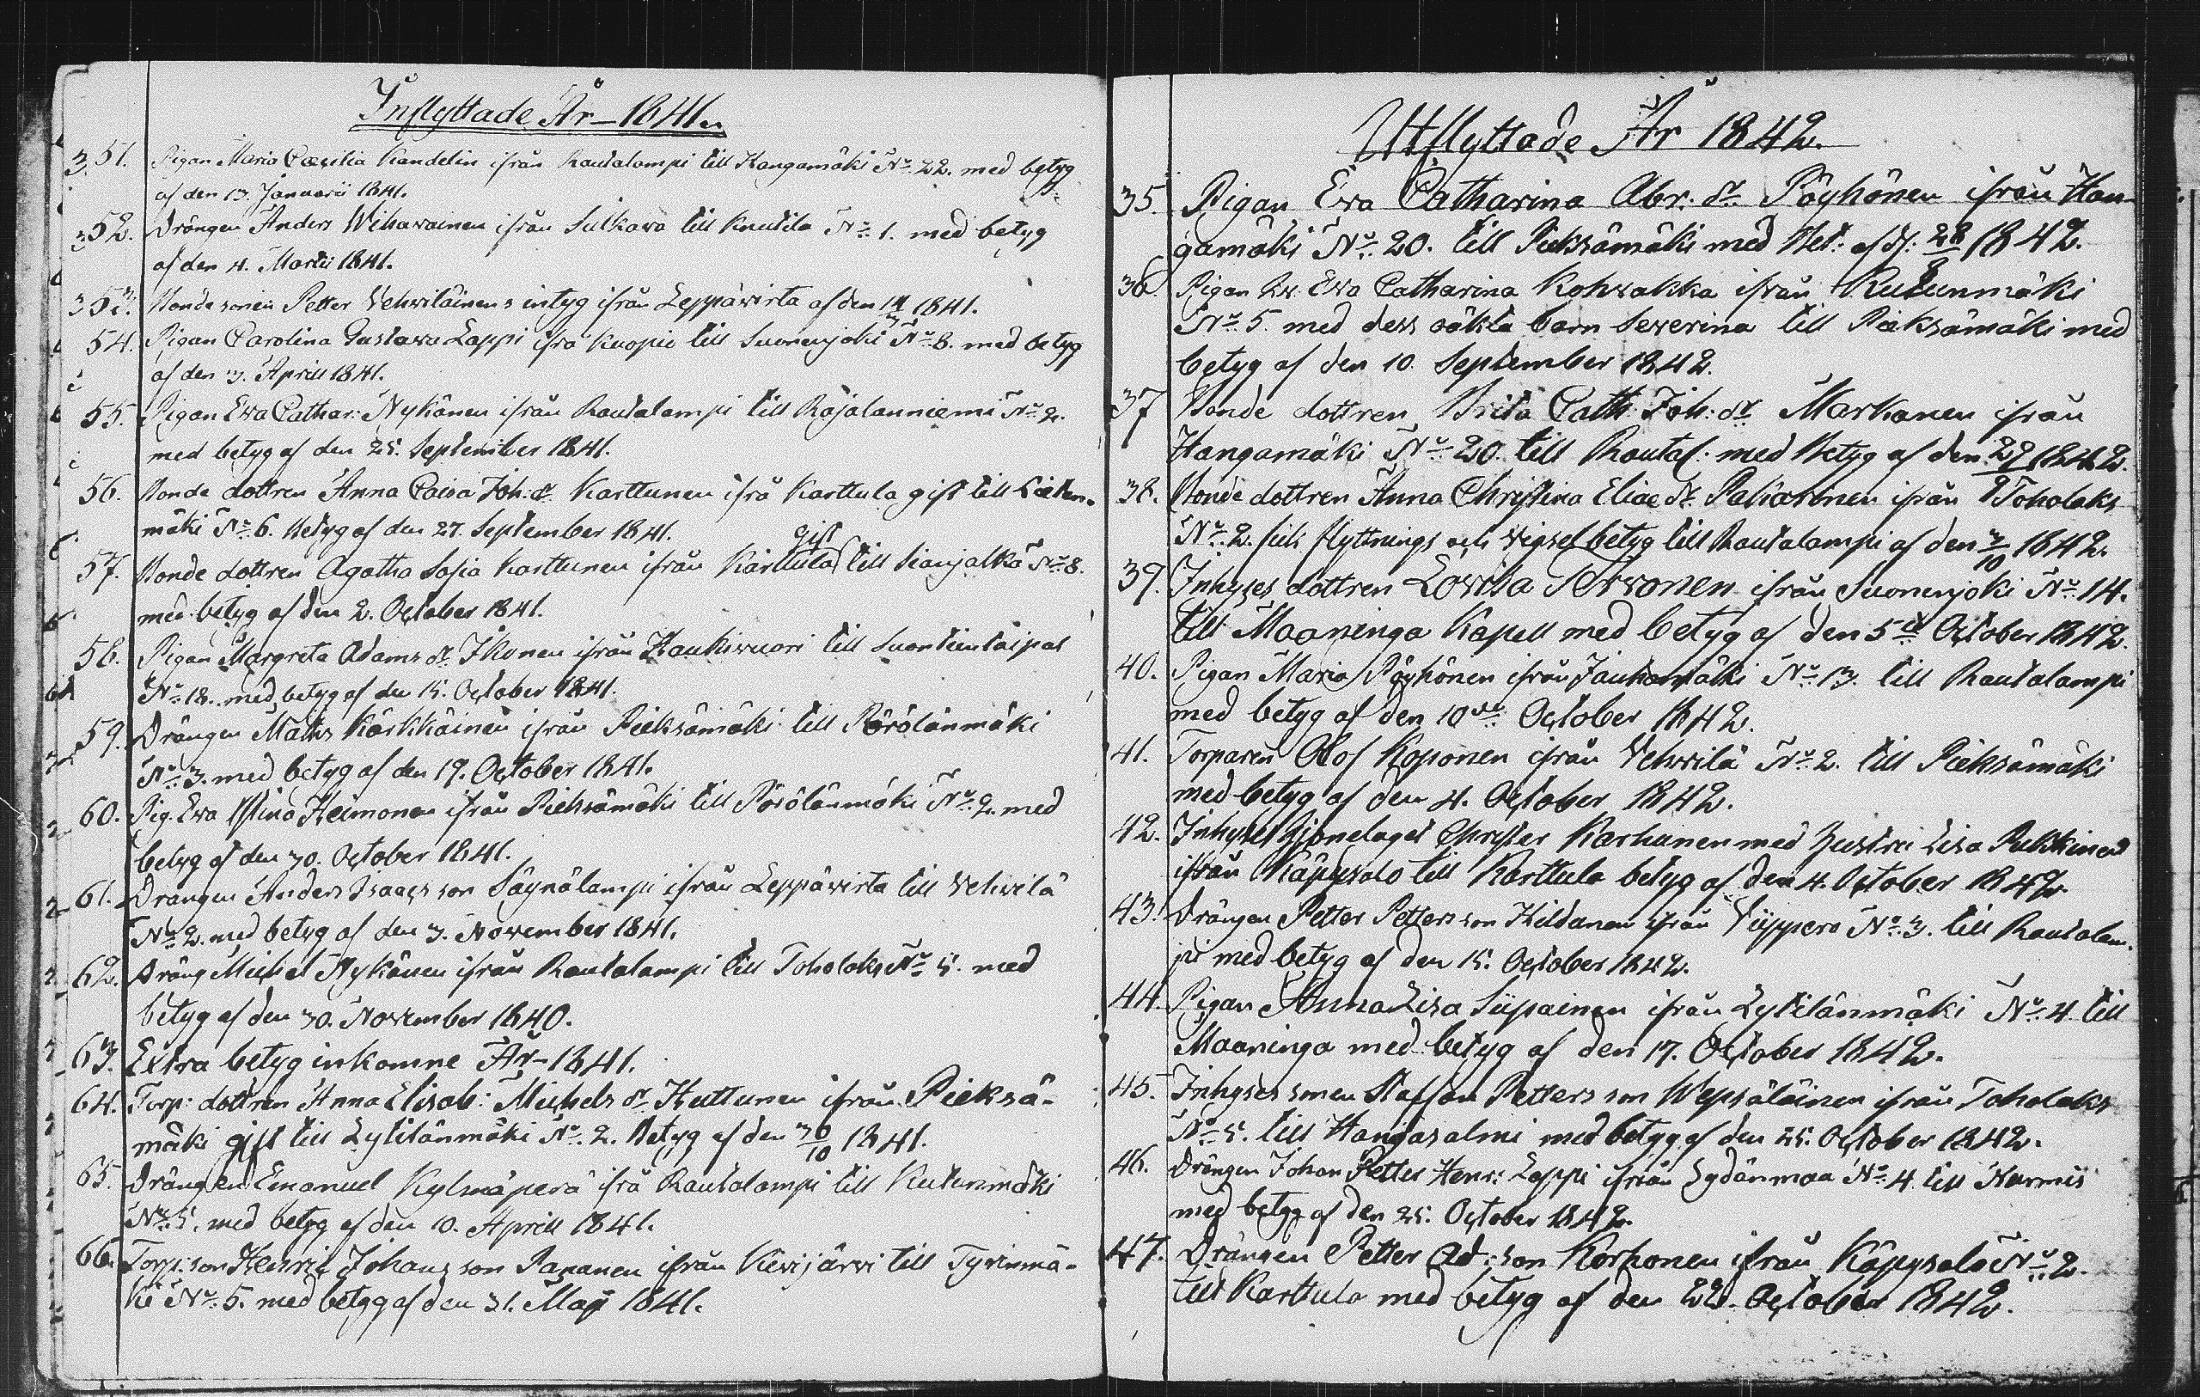 Inflyttade År - 1841.
51. Pigan Maria Cæcilia Kandelin ifrån Rautalampi till Hangamäki No 22. med betyg
af den 13. Januarii 1841.
52. Drängen Anders Wihavainen ifrån Sulkava till Knutila No 1. med betyg
af den 4. Martii 1841.
53. Bonde sonen Petter Vehviläinens intyg ifrån Leppävirta af den 1841.
54. Pigan Carolina Gustava Lappi ifrå Kuopio till Suonenjoki No 8. med betyg
af den 3. Aprill 1841.
55. Pigan Eva Cathar: Nykänen ifrån Rautalampi till Rajalanniemi No 2.
med betyg af den 25. September 1841.
56. Bonde dottren Anna Caisa Joh: dr Karttunen ifrå Karttula gift till
mäki No 6. Betyg af den 27. September 1841.
57. Bonde dottren Agatha Sofia Karttunen ifrån Karttula gift till Sianjalka No 8.
med betyg af den 2. October 1841.
58. Pigan Margreta Adams dr Ikonen ifrån Haukivuori till Suontientaipal
No 18. med betyg af den 15. October 1841.
59. Drängen Maths Kärkkäinen ifrån Pieksämäki till Pörölänmäki
No 3. med betyg af den 19. October 1841.
60. Pig. Eva Stina Heimonen ifrån Pieksämäki till Pörölänmäki No 2. med
betyg af den 30. October 1841.
61. Drängen Anders Isaacs son Säynälampi ifrån Leppävirta till Vehvilä
No 2. med betyg af den 3. November 1841.
62. Dräng Michel Nykänen ifrån Rautalampi till Toholaks No 5. med
betyg af den 30. November 1840.
63. Extra betyg inkomne År - 1841.
64. Torp: dottren Anna Elisab: Michels dr Huttunen ifrån Pieksä-
mäki gift till Lytilänmäki No 2. Betyg af den 30/10 1841.
65. Drängen Emanuel Kylmäperä ifrå Rautalampi till Kutunmäki
No 5. med betyg af den 10. Aprill 1841.
66. Torp: son Henric Johans son Papanen ifrån Kivijärvi till Tyrinmä-
ki No 5. med betyg af den 31. Maji 1841.
Utflyttade År 1842.
35. Pigan Eva Catharina Abr: dr Pöyhönen ifrån Han-
gamäki No 20. till Pieksämäki med Bet: af d: 28/8 1842.
36. Pigan Eva Catharina Kohvakka ifrån Kutunmäki
No 5. med dess oäkta barn Severina till Pieksämäki med
betyg af den 10. September 1842.
37 Bonde dottren Brita Cath: Joh: dr Markanen ifrån
Hangamäki No 20. till Rautal: med Betyg af den 1842.
38. Bonde dottren Anna Christina Eliae dr ifrån Toholaks
No 2. flyttnings och vigsel betyg till Rautalampi af den 3/10 1842.
39. Inhyses dottren Lovisa Tervonen ifrån Suonenjoki No 14.
till Maaninga Kapell med betyg af den 5te October 1842.
40. Pigan Maria Pöyhönen ifrån Jauhomäki No 13. till Rautalampi
med betyg af den 10de October 1842.
41. Torparen Olof Koponen ifrån Vehvilä No 2. till Pieksämäki
med betyg af den 4. October 1842.
42. Inhyses hjonelaget Christer Karhunen med hustru Lisa Pukkinen
ifrån Käpysalo till Karttula betyg af den 4. October 1842.
43. Drängen Petter Petters son Hildanen ifrån Viippero No 3. till Rautalam-
pi med betyg af den 15. October 1842.
44. Pigan Anna Lisa Siipainen ifrån Lytilänmäki No 4. till
Maaninga med betyg af den 17. October 1842.
45. Inhyses sonen Staffan Petters son Wepsäläinen ifrån Toholaks
No 5. till Hangasalmi med betyg af den 25. October 1842.
46. Drängen Johan Petter Henr: Lappi ifrån Lydänmaa No 4. till Nurmis
med betyg af den 25. October 1842.
47. Drängen Petter Ad: son Korhonen ifrån Käpysalo No 2.
till Karttula med betyg af den 22. October 1842.